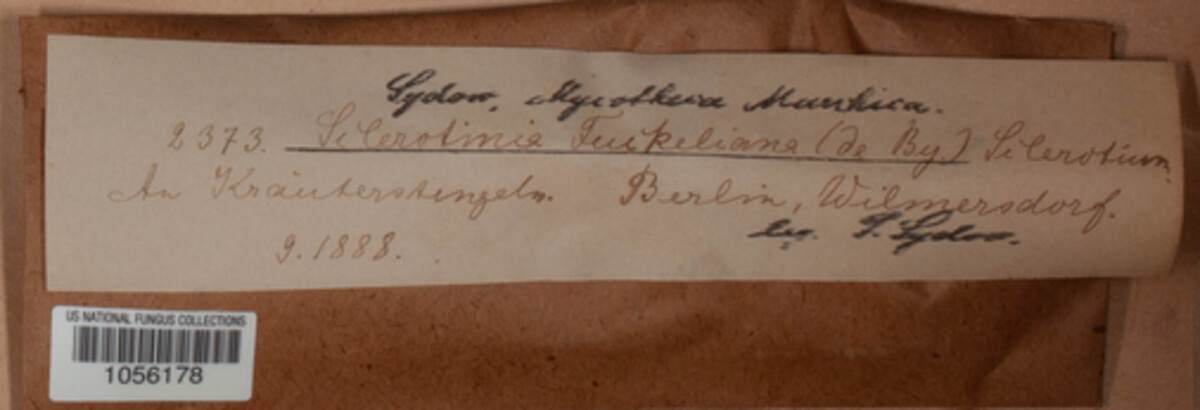 Sydow, Mycotheca Marchica.
2373. Sclerotinia Fuckeliana (de By.) Sclerotium.
An Kräuterstengeln. Berlin, Wilmersdorf.
leg. P. Sydow.
9. 1888.
US NATIONAL FUNGUS COLLECTIONS
1056178